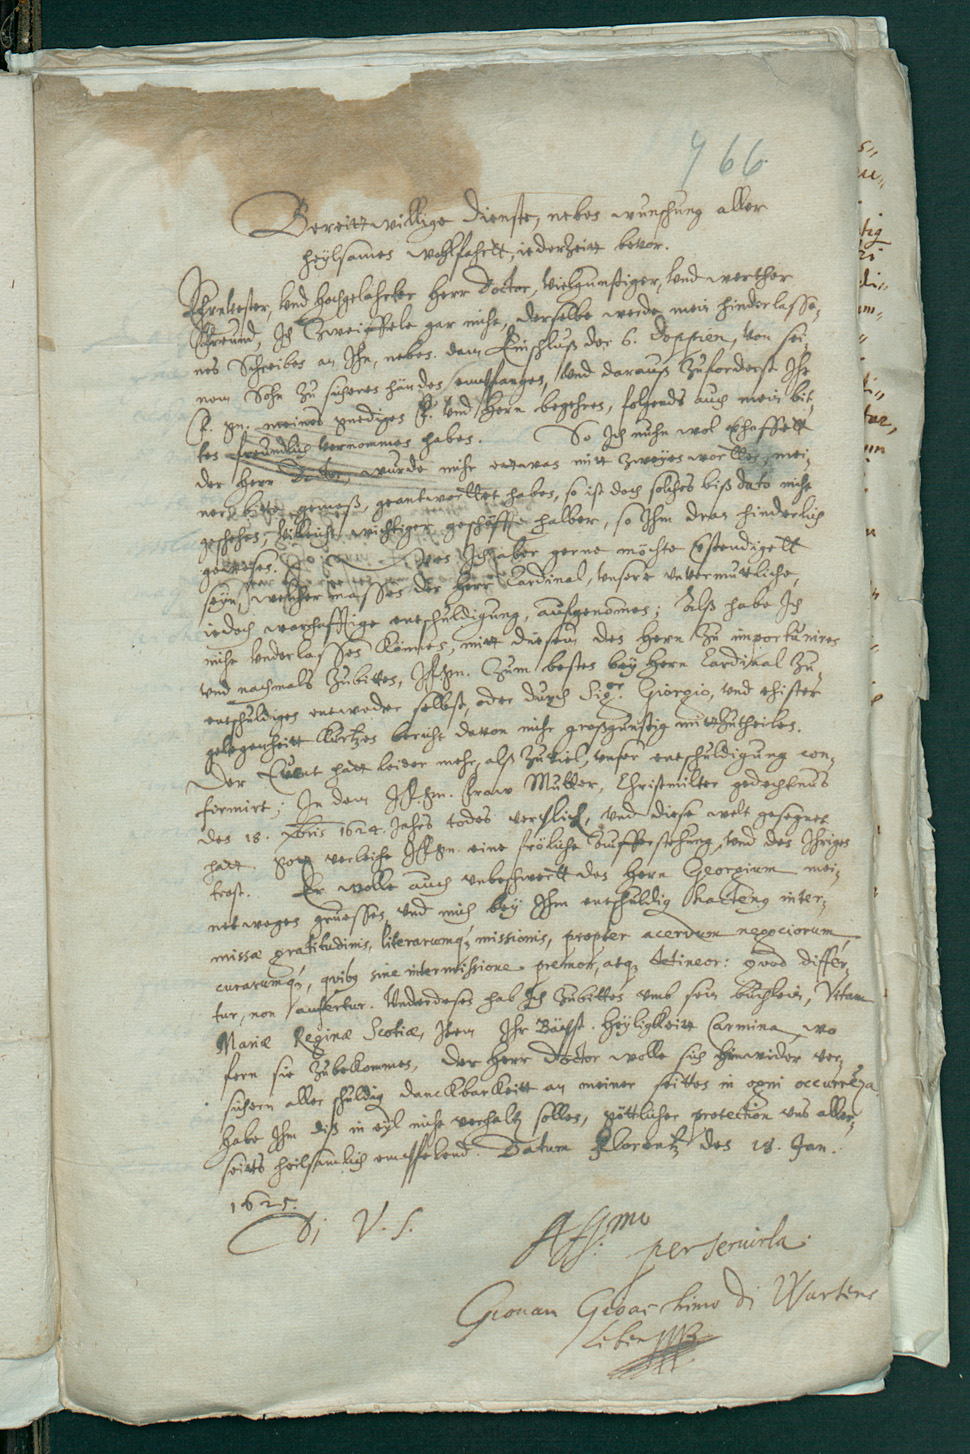 766.
Bereittwillige dienste, nebes wunschung aller
heÿlsames wohlfahrtt, iederzeitt bevor.
Ehrnvester, Vnd Hochgelahrter Herr Doctor, Vielgunstiger, Vnd werther
Freund, Ich Zweiffele gar nicht, derselbe werde mein hinderlasse-
nes Schreibes an Ihn, nebes dem Einschluß der 6. Doppien, von sei-
nem Sohn zu sicheres händes empfanges, Vnd darauß Zuforderst Ihr
F. gn. meines gnediges F. Vnd Hern begehres, folgends auch mein bit-
tes freundlich vernommes habes. So Ich nuhn wol
der Herr Doctor, wurde mihr etwas mitt zweyes worttes, mei-
ner bitte gemeß, geantworttet habes, so ist doch solches biß dato nicht
gescheches, Villeicht wichtiger geschäffte halber, so Ihm dran hinderlich
geweses. Ich aber gerne möchte
seyn, welcher masses der Herr Cardinal, vnsere vnvermutliche,
iedoch warhafftige entschuldigung, aufgenommes; Alß habe Ich
nicht Vnderlasses können, mitt diesem des Hern zu importunires
Vnd nachmals Zubittes, Zum bestes bey Hern Cardinal zu
entschuldiges entweder selbst, oder durch Sig.or Giorgio, Vnd
gelegenheitt kurtzes bericht davon mihr großgunstig mittzutheiles.
Der Event hatt leider mehr, alß Zuviel, vnser entschuldigung con-
firmirt; In dem Fraw Mutter, Christmilter gedechtnus
des 18. Xbris 1624. Jahrs todes verblich, Vnd diese welt gesegnet
hatt. Gott verleihe eine fröliche Aufferstehung, Vnd des Ihriges
trost. Er wolle auch vnbeschwertt des Hern Georgium mei-
netweges gruesses, Vnd mich bey Ihm entschuldig haltens inter-
missæ gratitudinis, literarumq; missionis, propter acervum negociorum
curarumq;, quibus sine intermissione premor, atq; detineor: quod differ-
tur, non aufertur. Vnderdeses hab Ich Zubittes vmb sein büchlein, Vitam
Mariæ Reginæ Scotiæ, Item Ihr Bäpst. Heÿligkeitt Carmina, wo
fern sie Zubekommes, der Herr Doctor wolle sich hinwider ver-
sichern aller schuldig danckbarkeitt an meiner seittes in ogni occurreza
habe Ihm diß in eyl nicht verhaltes solles, göttlicher protection vns aller-
seits heilsamlich empfelend. Datum Florentz des 18. Jan.
1625.
Di V. S.
Aff.mo
per seruirla.
Giouan Gioachimo di Wartens
leben